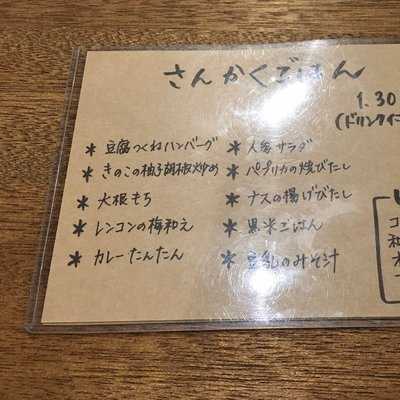 さんかくごはん
1.30
(ドリンク
* 豆腐つくねハンバーグ
* きのこの柚子胡椒炒め
* 大根もち
* レンコンの梅和え
* カレーたんたん
* 人参サラダ
* パプリカの焼びたし
* ナスの揚げびたし
* 黒米ごはん
* 豆乳のみそ汁